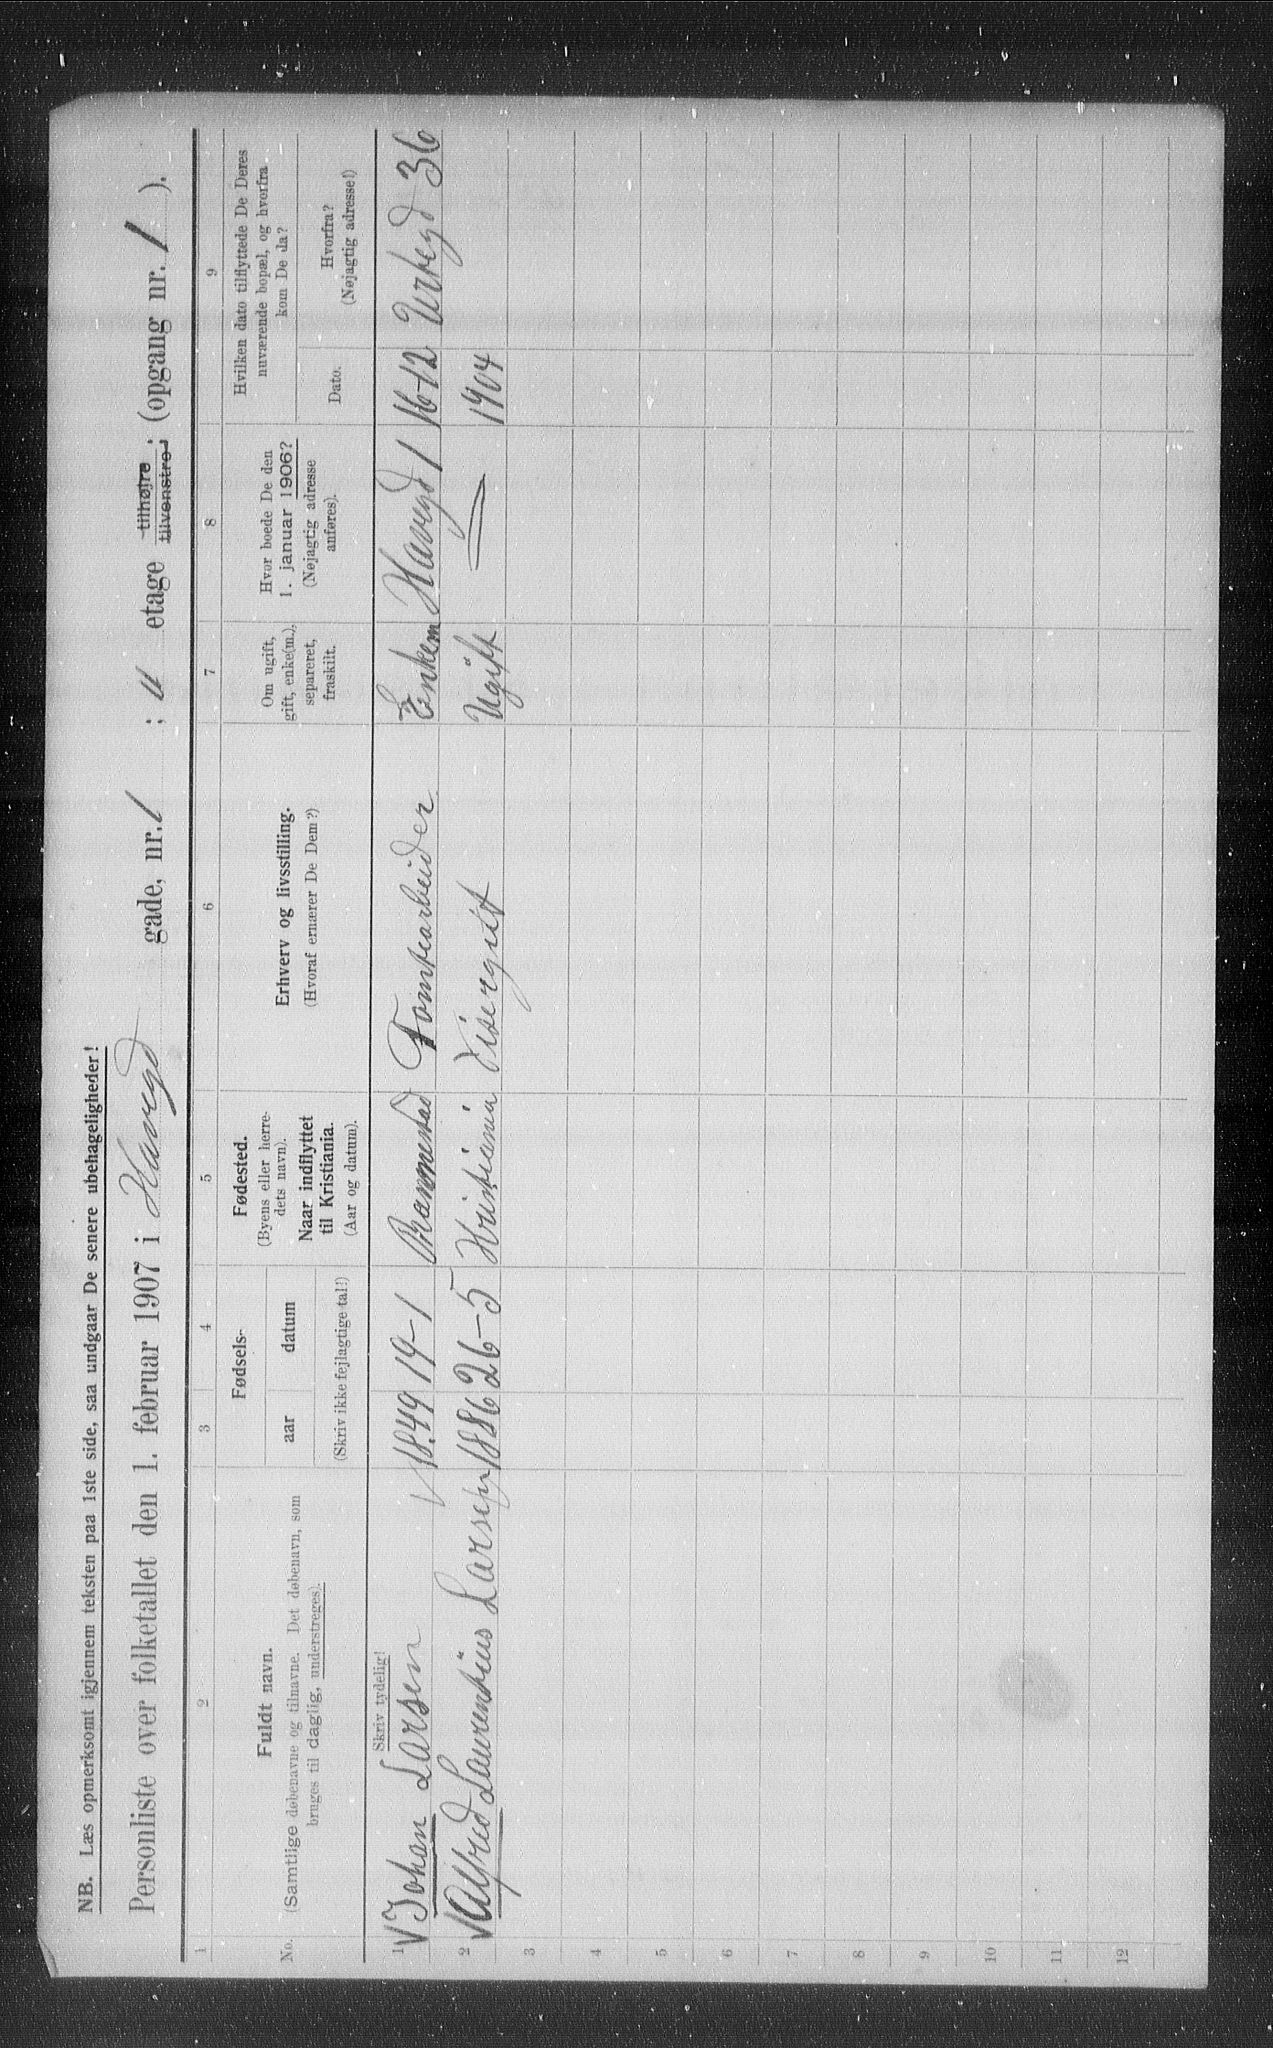 NB. Læs opmerksomt igjennem teksten paa 1ste side, saa undgaar De senere ubehageligheder!
Personliste over folketallet den 1. februar 1907 i Havegd gade, nr. 1 ; II etage tilhøjre, tilvenstre, (opgang nr. 1 ).
1 2 3 4 5 6 7 8 9
No.
Fuldt navn.
(Samtlige døbenavne og tilnavne. Det døbenavn, som
bruges til daglig, understreges).
Fødsels-
aar datum
(Skriv ikke fejlagtige tal!)
Fødested.
(Byens eller herre-
dets navn).
Naar indflyttet
til Kristiania.
(Aar og datum).
Erhverv og livsstilling.
(Hvoraf ernærer De Dem?)
Om ugift,
gift, enke(m.),
separeret,
fraskilt.
Hvor boede De den
1. januar 1906?
(Nøjagtig adresse
anføres).
Hvilken dato tilflyttede De Deres
nuværende bopæl, og hvorfra
kom De da?
Dato.
Hvorfra?
(Nøjagtig adresse!)
Skriv tydelig!
1 Johan Larsen 1849 19-1 Tomtearbeider Enkem Havegd 1 16-12 Urtegd 36
2 Alfred Laurentius Larsen 1886 26-5 Kristiania Visergut Ugift 1904
3
4
5
6
7
8
9
10
11
12